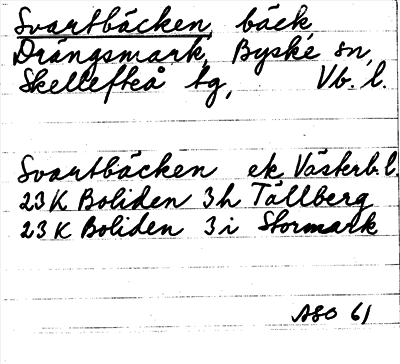 Svartbäcken, bäck,
Drängsmark, Byske sn,
Skellefteå tg, Vb. l.
Svartbäcken ek Västerb. l.
23 K Boliden 3 h Tållberg
23 K Boliden 3 i Stormark
ASO 61